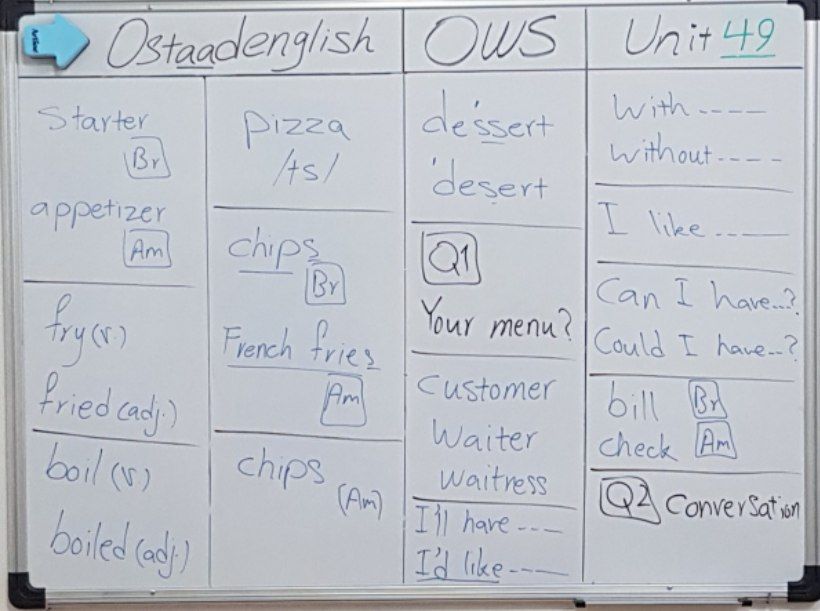 Ostaadenglish
OWS
Unit 49
Starter
Br
appetizer
Am
fry (v.)
fried (adj.)
boil (v.)
boiled (adj.)
pizza
/ts/
chips
Br
French fries
Am
chips
(Am)
de'ssert
'desert
Q1
Your menu?
Customer
Waiter
Waitress
I'll have ---
I'd like ----
With ----
Without ----
I like ----
Can I have...?
Could I have...?
bill Br
check Am
Q2 Conversation